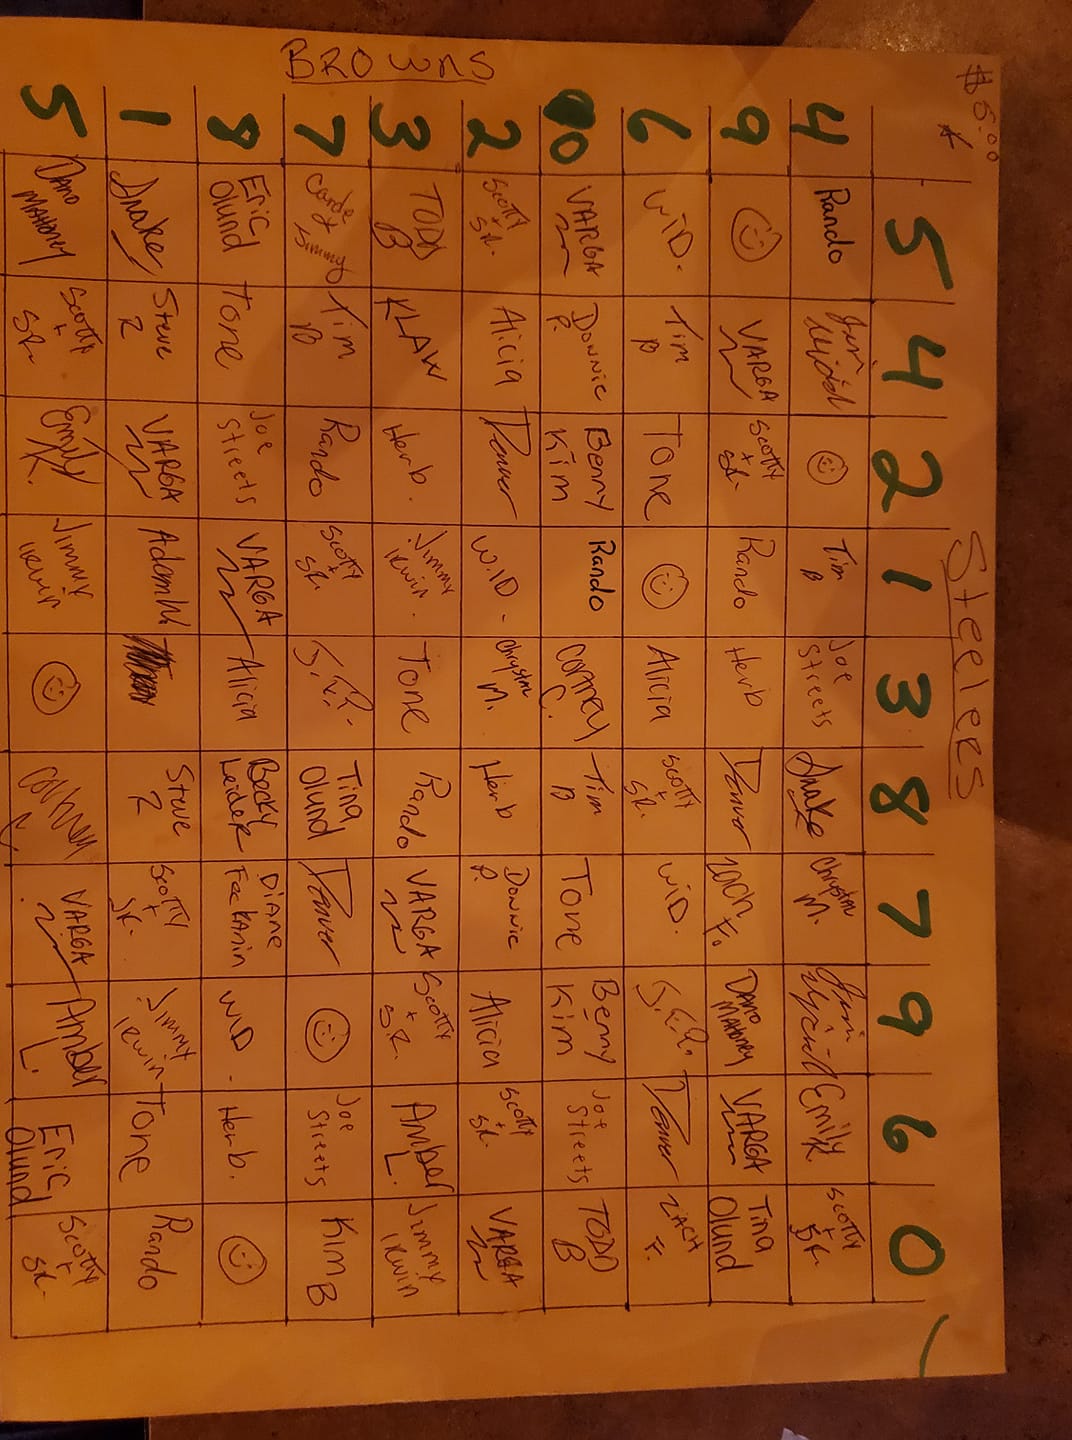 $5.00
Steelees
BROWNS
5 4 2 1 3 8 7 9 6 0
4 Rando Tim B Joe Streets Snake Chrystal M. Emily K. Scotty + SR.
9 VARGA Scotty + SR. Rando Herb Denver Zach F. DANO MAHONEY VARGA Tina Olund
6 WID. Tim B Tone Alicia Scotty + SR. WID. J.R. Denver ZACH F.
0 VARGA DONNIE P. Benny Kim Rando CORTNEY C. Tim B Tone Benny Kim Joe Streets TODD B
2 Scotty + SR. Alicia Denver WID - Chrystal M. Herb DONNIE P. Alicia Scotty + SR. VARGA
3 TODD B KLAW Herb. Jimmy Irwin. Tone Rando VARGA Scotty + SR. Amber L. Jimmy Irwin
7 Tim B Rando Scotty + SR. J.R. Tina Olund Denver Joe Streets Kim B
8 Eric Olund Tone Joe Streets VARGA Alicia Becky Leider Diane WID - Herb.
1 Snake Steve Z VARGA AdamW Steve Z Scotty + SR. Jimmy Irwin Tone Rando
5 DANO MAHONEY Scotty + SR. Emily K. Jimmy Irwin VARGA Amber L. Eric Olund Scotty + SR.